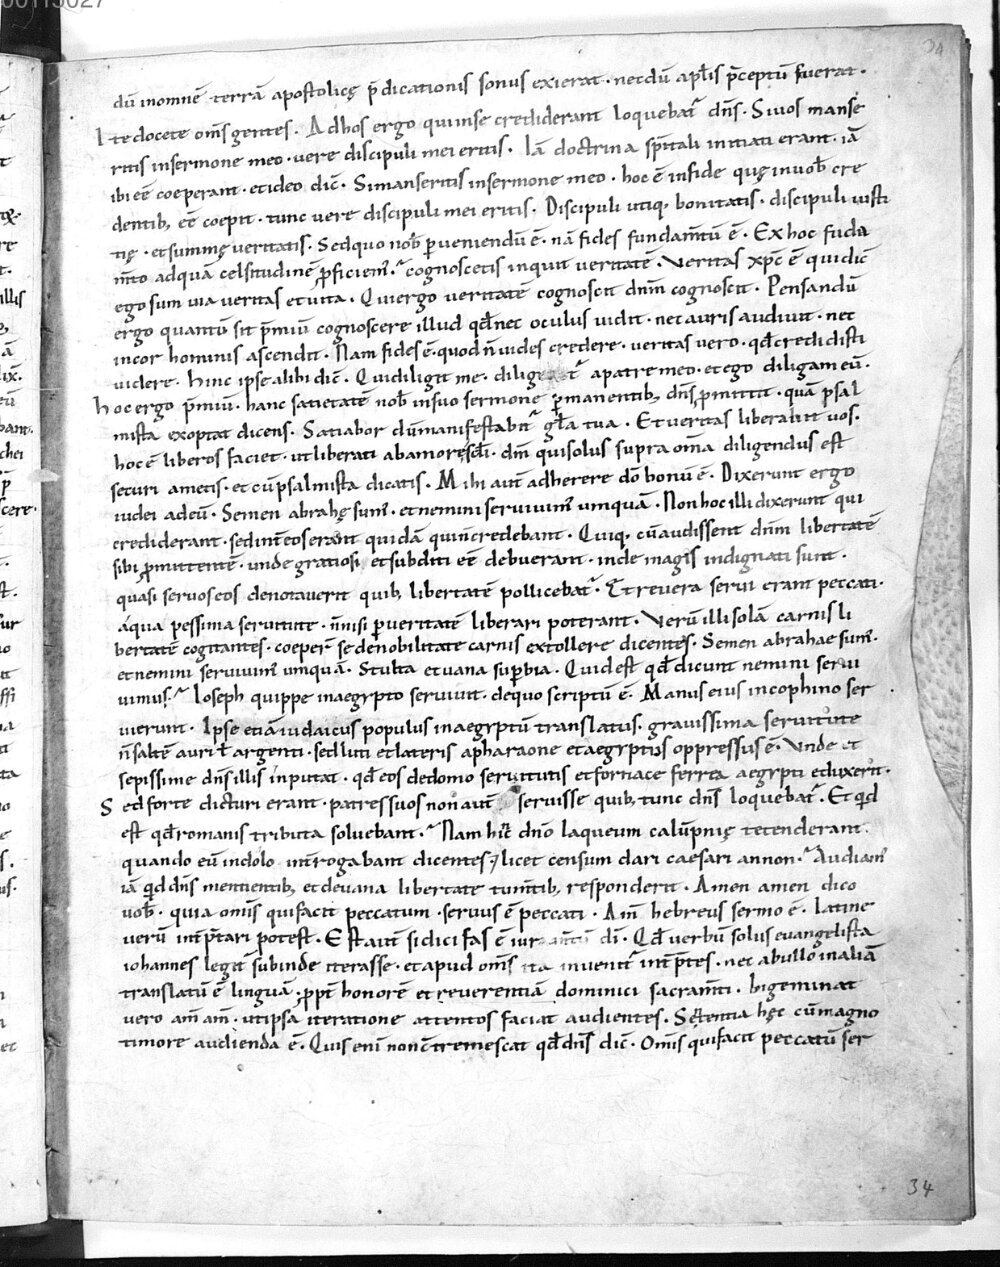 dū inomnē terrā apostolicę p̄dicationis sonus exierat · necdū apl̄is p̄ceptū fuerat ·
Ite docete om̄s gentes . Adhos ergo quiinse crediderant loquebat᷑ dn̄s . Siuos manse
ritis insermone meo · vere discipuli mei eritis . Iā doctrina sp̄itali initiati erant · iā
ibi eē coeperant · etideo dic̄ . Simanseritis insermone meo · hoc ē infide quę inuob̄ cre
dentib; eē coepit · tunc vere discipuli mei eritis . Discipuli utiq; bonitatis · discipuli iusti
tię · etsummę veritatis . Sedquo nob̄ p̱ueniendū ē · nā fides fundam̄tū ē . Ex hoc fūda
m̄to adquā celsitudinē ꝓficiem᷒ .᷑ cognoscetis inquit veritatē . Veritas xp̄c ē quidic̄
ego sum uia veritas etvita . Quiergo veritatē cognoscit dn̄m cognoscit . Pensandū
ergo quantū sit p̄miū cognoscere illud qd̄ nec oculus uidit · nec auris audiuit · nec
incor hominis ascendit . Nam fides ē · quod n̄ uides credere · veritas vero · qd̄ credidisti
uidere . hinc ipse alibi dic̄ . Quidiligit me · diliget᷑ apatre meo · etego diligam eū .
hoc ergo p̄miū · hanc satietatē nob̄ insuo sermone p̱manentib; dn̄s ꝓmittit · quā psal
mista exoptat dicens . Satiabor dūmanifestabit᷑ gl̄a tua . Et veritas liberabit uos .
hoc ē liberos faciet · ut liberati abamore sc̄li · dn̄m quisolus supra om̄a diligendus est
securi ametis · et cū psalmista dicatis . Mihi aut̄ adherere dō bonū ē . Dixerunt ergo
iudei adeū . Semen abrahę sum᷒ · etnemini seruiuim᷒ umquā . Non hoc illi dixerunt qui
crediderant · sed int̄ eos erant quidā quin̄ credebant . Quiq; cū audissent dn̄m libertatē
sibi ꝓmittentē · unde gratiosi etsubditi eē debuerant · inde magis indignati sunt ·
quasi seruos eos denotauerit quib; libertatē pollicebat᷑ . Et reuera serui erant peccati ·
aqua pessima seruitute · n̄nisi p̱ueritatē liberari poterant . Verū illi solā carnis li
bertatē cogitantes · coeper̄ se denobilitate carnis extollere dicentes . Semen abrahae sum᷒ ·
etnemini seruiuim᷒ umquā . Stulta et uana sup̱bia . Quid est qd̄ dicunt nemini serui
uimus .᷑ Ioseph quippe inaegypto seruiuit · dequo scriptū ē . Manus eius incophino ser
uierunt . Ipse etiā iudaicus populus inaegyptū translatus · grauissima seruitute
n̄ saltē auri ł argenti · sed luti et lateris apharaone etaegyptios oppressus ē . Vnde et
sepissime dn̄s illis inputat · qd̄ eos dedomo seruitutis etfornace ferrea aegypti eduxerit .
Sed forte dicturi erant · patres suos non aut̄ seruisse quib; tunc dn̄s loquebat᷑ . Et qd̄
est qd̄ romanis tributa soluebant .᷑ Nam hīc dn̄o laqueum calūpnię tetenderant ·
quando eū indolo int̄rogabant dicentes ; licet censum dari caesari annon .᷑ Audiam᷒
iā qd̄ dn̄s mentientib; et deuana libertate tum̄tib; responderit . Amen amen dico
uob̄ · quia om̄is quifacit peccatum · seruus ē peccati . Am̄ hebreus sermo ē . latine
verū int̄p̄tari potest . Est aut̄ sidici fas ē iuram̄tū dī . Qd̄ verbū solus euangelista
iohannes legit᷑ subinde iterasse · et apud om̄s ita inuenit᷑ int̄p̄tes · nec abullo inaliā
translatū ē linguā · ꝓpt̄ honorē et reuerentiā dominici sacram̄ti . bigeminat
vero am̄ am̄ · utipsa iteratione attentos faciat audientes . Sententia hęc cūmagno
timore audienda ē . Quis enī non c̄tremescat qd̄ dn̄s dic̄ . Om̄is quifacit peccatū ser
34